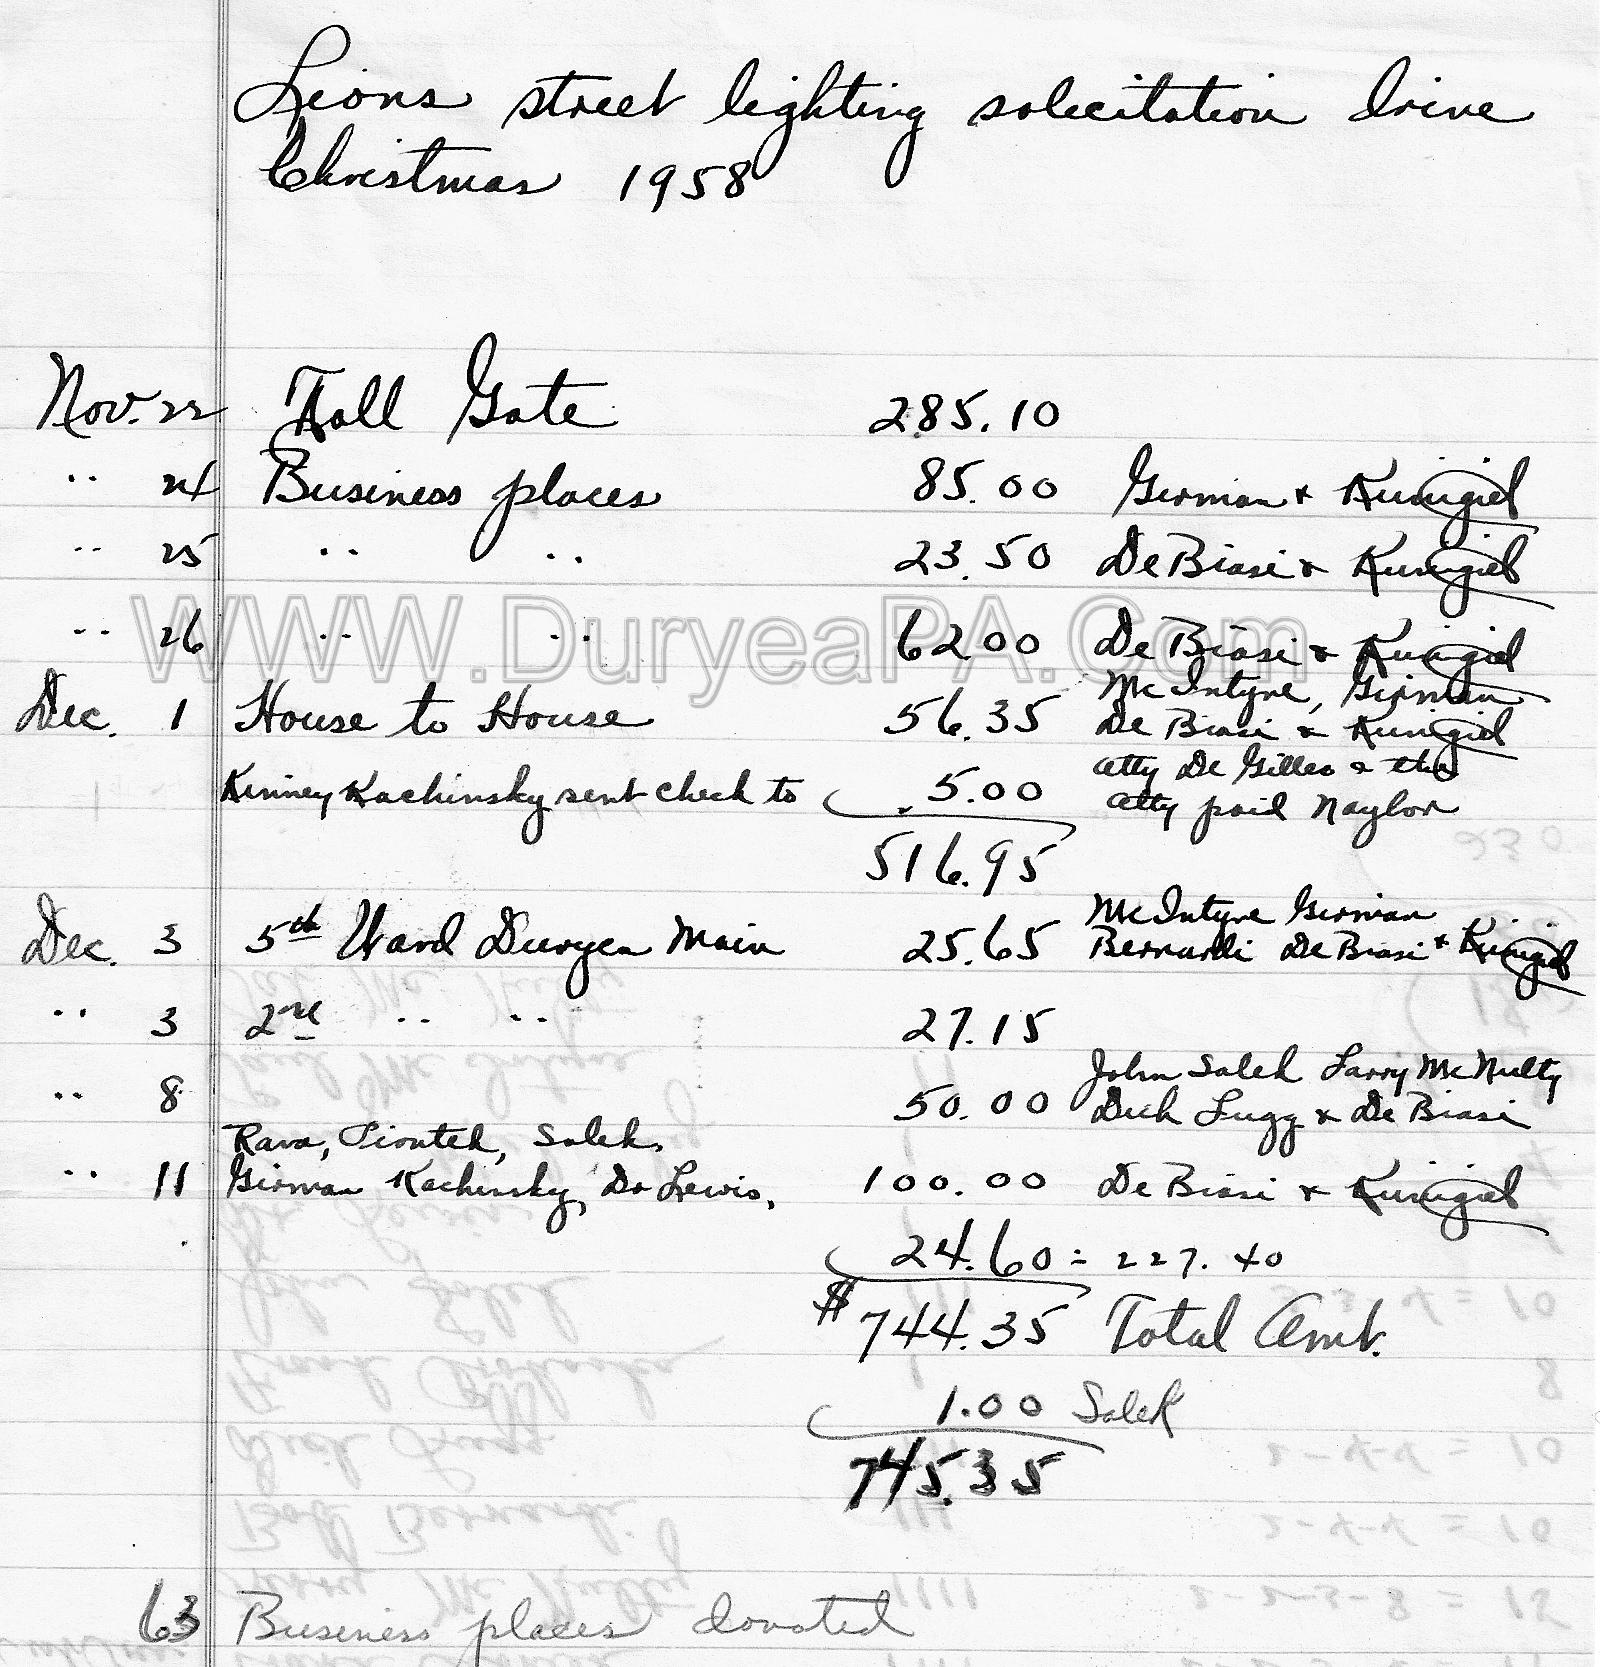 Lions street lighting solicitation drive
Christmas 1958
Nov. 22 Toll Gate 285.10
" 24 Business places 85.00 Girman & Kunigiel
" 25 " " 23.50 De Biasi & Kunigiel
" 26 " " 62.00 De Biasi & Kunigiel
WWW.DuryeaPA.Com
Dec. 1 House to House 56.35 McIntyre, Girman
De Biasi & Kunigiel
Kinney Kachinsky sent check to 5.00 Atty De Gilleo & the
Atty paid Naylor
516.95
Dec. 3 5th Ward Duryea Main 25.65 McIntyre Girman
Bernardi De Biasi & Kunigiel
" 3 2nd " " 27.15
" 8 50.00 John Salek Larry McNulty
Dick Lugg & De Biasi
Rava, Piontek, Salek,
" 11 Girman Kachinsky, Dr Lewis, 100.00 De Biasi & Kunigiel
24.60 = 227.40
$744.35 Total Amt.
1.00 Salek
745.35
63 Business places donated